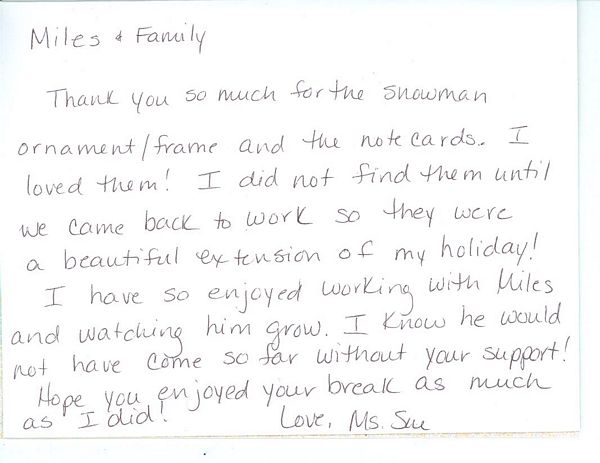 Miles & Family
Thank you so much for the snowman
ornament/frame and the note cards. I
loved them! I did not find them until
we came back to work so they were
a beautiful extension of my holiday!
I have so enjoyed working with Miles
and watching him grow. I know he would
not have come so far without your support!
Hope you enjoyed your break as much
as I did!
Love, Ms. Sue